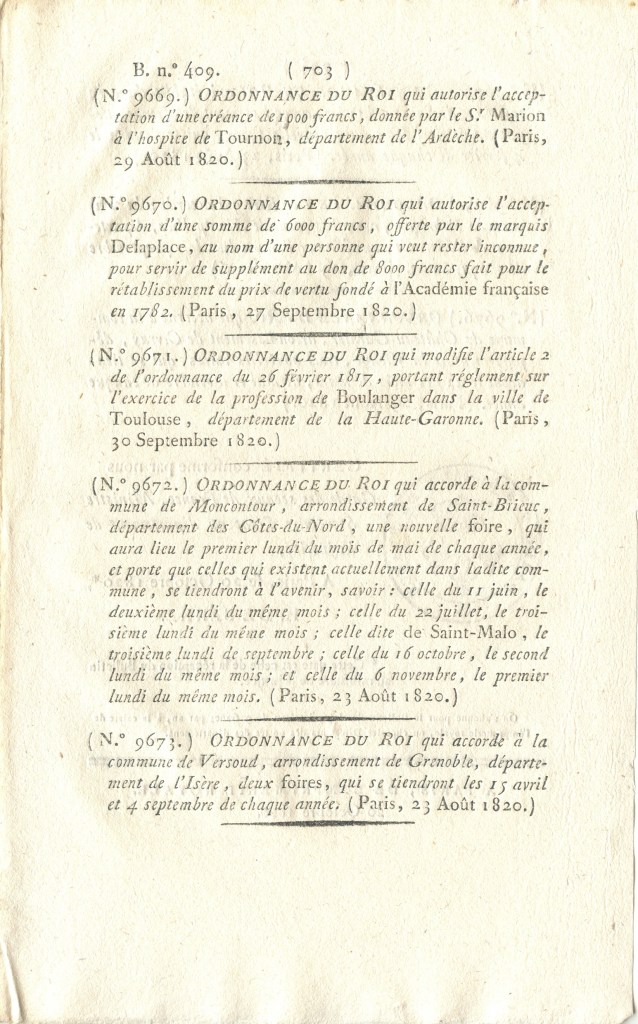 B. n.° 409. ( 703 )
(N.° 9669.) ORDONNANCE DU ROI qui autorise l'accep-
tation d'une créance de 1900 francs, donnée par le S.r Marion
à l'hospice de Tournon, département de l'Ardèche. (Paris,
29 Août 1820.)
(N.° 9670.) ORDONNANCE DU ROI qui autorise l'accep-
tation d'une somme de 6000 francs, offerte par le marquis
Delaplace, au nom d'une personne qui veut rester inconnue,
pour servir de supplément au don de 8000 francs fait pour le
rétablissement du prix de vertu fondé à l'Académie française
en 1782. (Paris, 27 Septembre 1820.)
(N.° 9671.) ORDONNANCE DU ROI qui modifie l'article 2
de l'ordonnance du 26 février 1817, portant réglement sur
l'exercice de la profession de Boulanger dans la ville de
Toulouse, département de la Haute-Garonne. (Paris,
30 Septembre 1820.)
(N.° 9672.) ORDONNANCE DU ROI qui accorde à la com-
mune de Moncontour, arrondissement de Saint-Brieuc,
département des Côtes-du-Nord, une nouvelle foire, qui
aura lieu le premier lundi du mois de mai de chaque année,
et porte que celles qui existent actuellement dans ladite com-
mune, se tiendront à l'avenir, savoir : celle du 11 juin, le
deuxième lundi du même mois ; celle du 22 juillet, le troi-
sième lundi du même mois ; celle dite de Saint-Malo, le
troisième lundi de septembre ; celle du 16 octobre, le second
lundi du même mois ; et celle du 6 novembre, le premier
lundi du même mois. (Paris, 23 Août 1820.)
(N.° 9673.) ORDONNANCE DU ROI qui accorde à la
commune de Versoud, arrondissement de Grenoble, départe-
ment de l'Isère, deux foires, qui se tiendront les 15 avril
et 4 septembre de chaque année. (Paris, 23 Août 1820.)